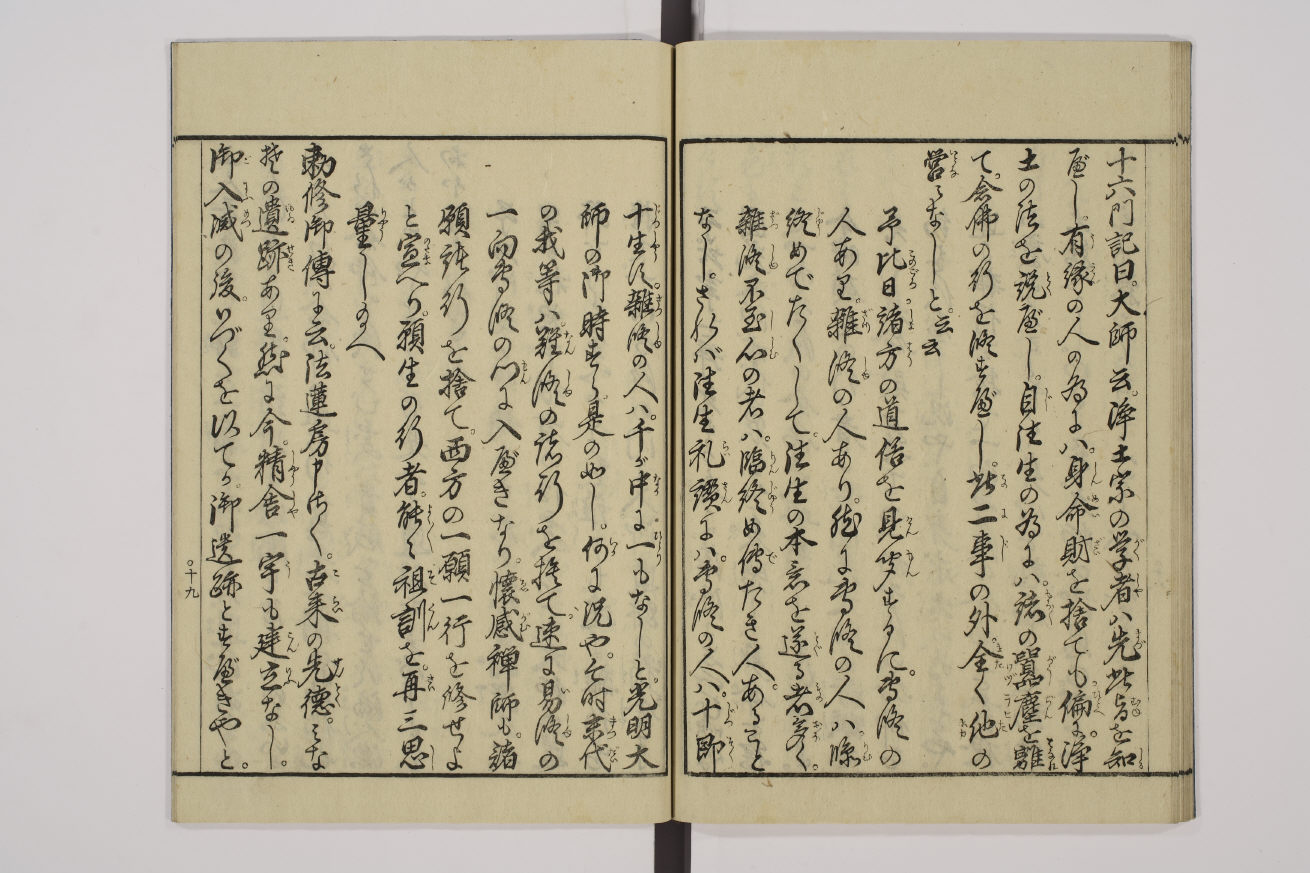 十六門記曰。大師云。浄土宗の学者ハ先此旨を知
べし。有縁の人の為にハ。身命財を捨ても偏に浄
土の法を説べし。自往生の為にハ。諸の囂塵を離
て。念佛の行を修すべし。此二事の外。全く他の
営みなしと。云云
予比日諸方の道俗を見聞するに。専修の
人あり。雑修の人あり。然に専修の人ハ臨
終めでたくして。往生の本意を遂る者多く。
雑修不至心の者ハ。臨終め傳たき人あること
なし。されバ往生礼讃にハ。専修の人ハ。十即
十生じ。雑修の人ハ。千が中に一もなしと。光明大
師の御時すら是の如し。何に況や。今時末代
の我等ハ。難修の諸行を捨て。速に易修の
一向専修の門に入べきなり。懐感禅師も。諸
願諸行を捨て。西方の一願一行を修せよ
と宣へり。願生の行者。能々祖訓を。再三思
量し給へ
勅修御傳に云。法蓮房申さく。古来の先徳。みな
其の遺跡あり。然に今。精舎一宇も建立なし。
御入滅の後。いづくを以てか。御遺跡とすべきやと。
。十九